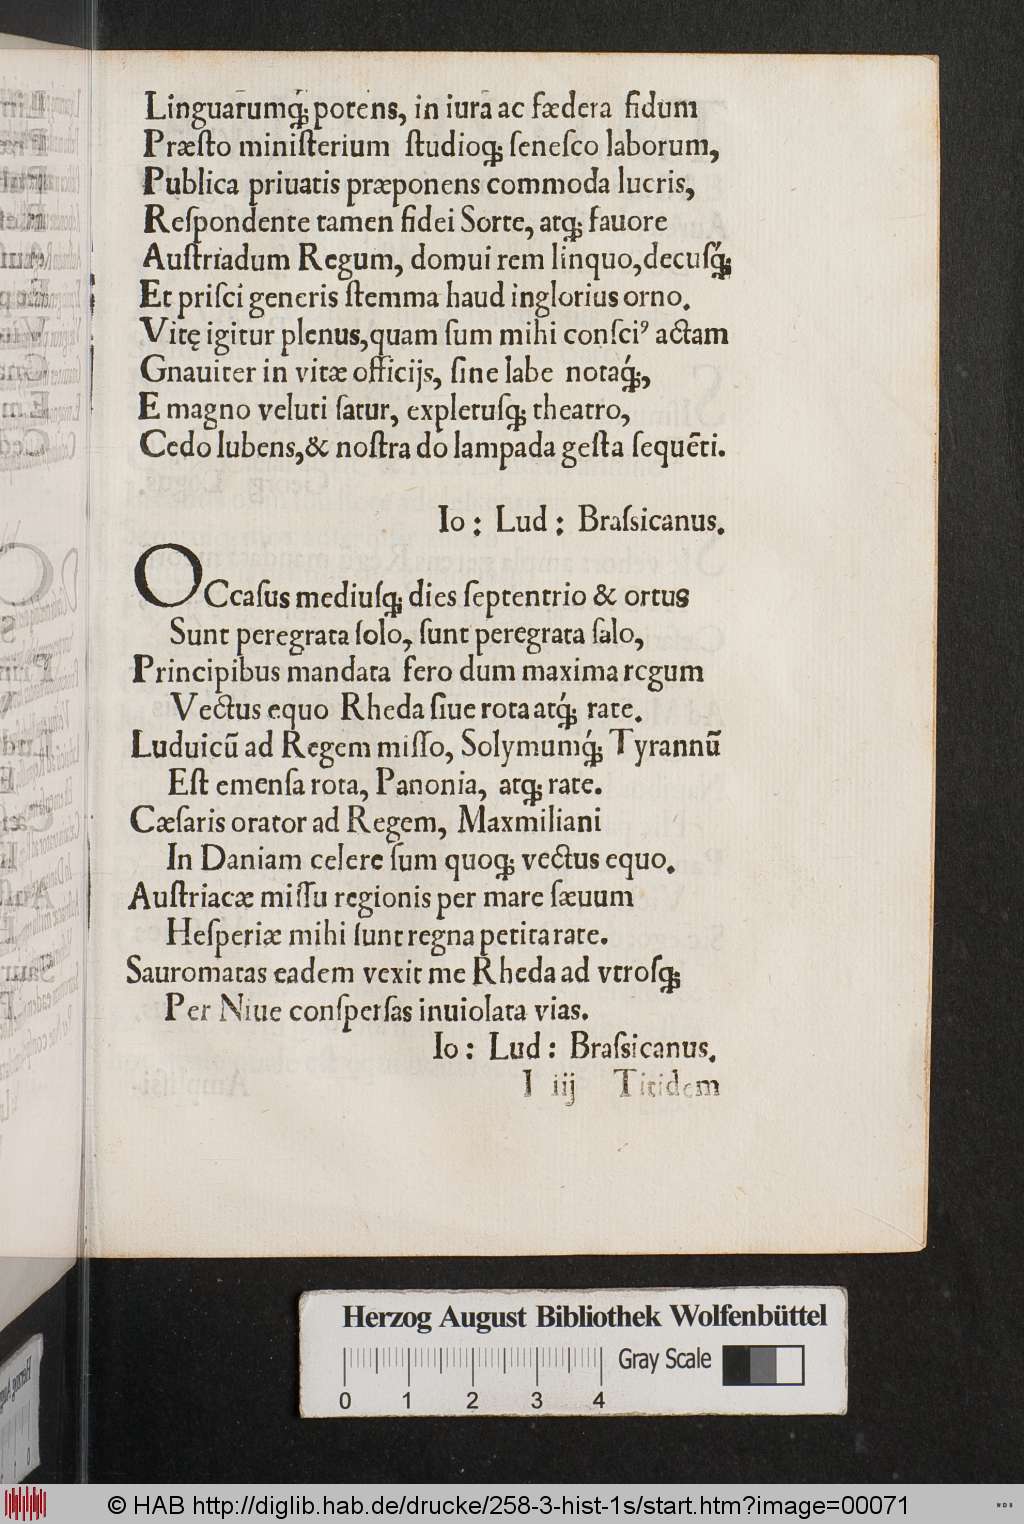 Linguarumq́; potens, in iura ac fædera fidum
Præſto miniſterium ſtudioq; ſeneſco laborum,
Publica priuatis præponens commoda lucris,
Reſpondente tamen fidei Sorte, atq; fauore
Auſtriadum Regum, domui rem linquo, decuſq́;
Et priſci generis ſtemma haud inglorius orno.
Vitę igitur plenus, quam ſum mihi conſciꝰ actam
Gnauiter in vitæ officijs, ſine labe notaq́;,
E magno veluti ſatur, expletuſq; theatro,
Cedo lubens, & noſtra do lampada geſta ſequēti.
Io: Lud: Braſsicanus.
OCcaſus mediuſq; dies ſeptentrio & ortus
Sunt peregrata ſolo, ſunt peregrata ſalo,
Principibus mandata fero dum maxima regum
Vectus equo Rheda ſiue rota atq́; rate.
Luduicū ad Regem miſſo, Solymumq́; Tyrannū
Eſt emenſa rota, Panonia, atq; rate.
Cæſaris orator ad Regem, Maxmiliani
In Daniam celere ſum quoq; vectus equo.
Auſtriacæ miſſu regionis per mare ſæuum
Heſperiæ mihi ſunt regna petita rate.
Sauromatas eadem vexit me Rheda ad vtroſq;
Per Niue conſperſas inuiolata vias.
Io: Lud: Braſsicanus.
I iij Titidem
Herzog August Bibliothek Wolfenbüttel
Gray Scale
0 1 2 3 4
© HAB http://diglib.hab.de/drucke/258-3-hist-1s/start.htm?image=00071